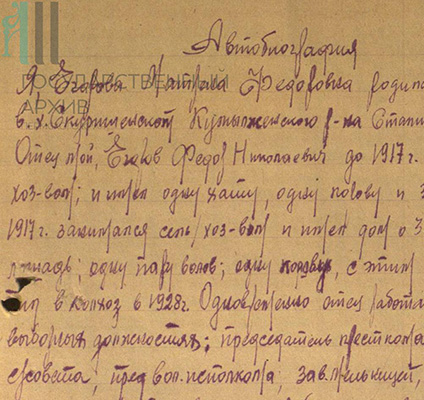 ГОСУДАРСТВЕННЫЙ
АРХИВ
Автобиография
Я Егорова Федоровна родила
в х. Скуришенской Кумылженского р-на Сталин
Отец мой, Егоров Федор Николаевич до 1917 г.
хоз-вом; имел одну хату, одну корову и 3
1917 г. занимался сель/хоз-вом и имел дом о 3
лошадь; одну пару волов; одну корову, с этим
в колхоз в 1928 г. Одновременно отец работа
выборных должностях; председатель кресткома
с/совета; пред вол. исполкома; зав. мельницей,